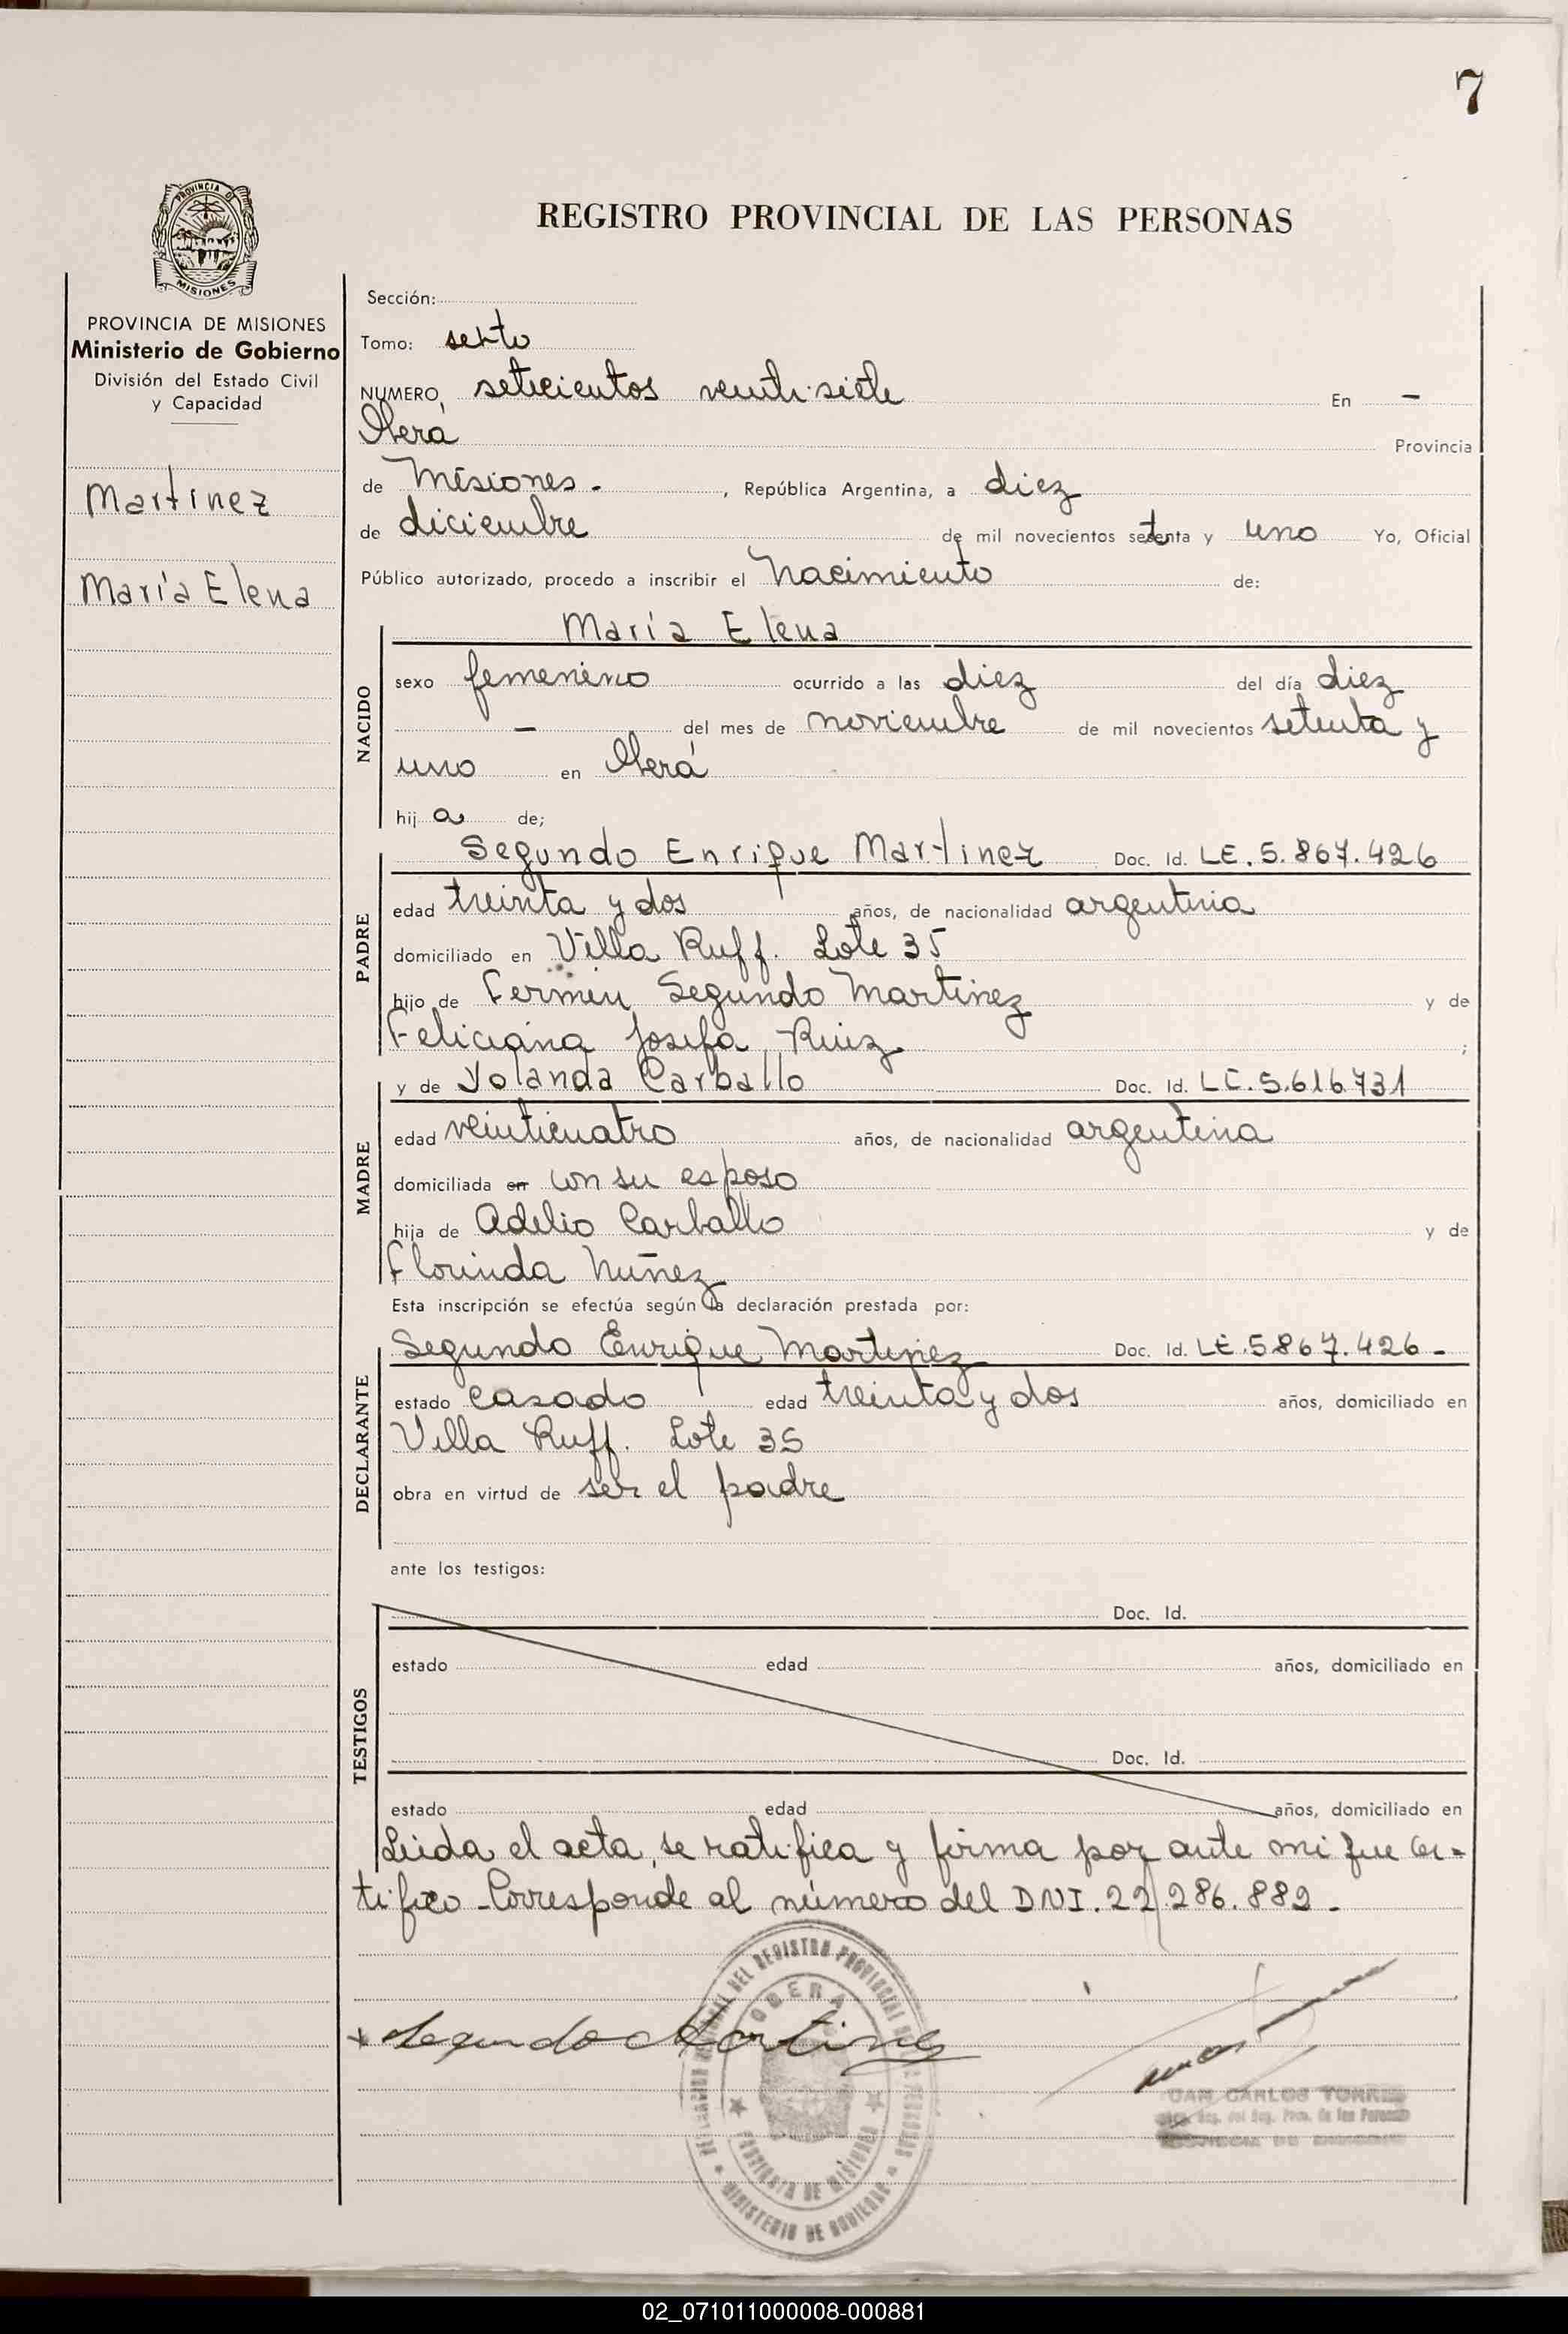 7
PROVINCIA DE
MISIONES
REGISTRO PROVINCIAL DE LAS PERSONAS
PROVINCIA DE MISIONES
Ministerio de Gobierno
División del Estado Civil
y Capacidad
Martinez
María Elena
Sección:
Tomo: sexto
NUMERO, setecientos veinti siete En -
Oberá Provincia
de Misiones. , República Argentina, a diez
de diciembre de mil novecientos setenta y uno Yo, Oficial
Público autorizado, procedo a inscribir el Nacimiento de:
María Elena
NACIDO
sexo femenino ocurrido a las diez del día diez
- del mes de noviembre de mil novecientos setenta y
uno en Oberá
hij a de;
Segundo Enrique Martinez Doc. Id. LE. 5.867.426
PADRE
edad treinta y dos años, de nacionalidad argentina
domiciliado en Villa Ruff. Lote 35
hijo de Fermin Segundo Martinez y de
Feliciana Josefa Ruiz ;
y de Yolanda Carballo Doc. Id. LC. 5.616.731
MADRE
edad veinticuatro años, de nacionalidad argentina
domiciliada en con su esposo
hija de Adelio Carballo y de
Florinda Nuñez
Esta inscripción se efectúa según la declaración prestada por:
Segundo Enrique Martinez Doc. Id. LE. 5867.426 -
DECLARANTE
estado casado edad treinta y dos años, domiciliado en
Villa Ruff. Lote 35
obra en virtud de ser el padre
ante los testigos:
TESTIGOS
Doc. Id.
estado edad años, domiciliado en
Doc. Id.
estado edad años, domiciliado en
Leida el acta, se ratifica y firma por ante mi que cer-
tifico - Corresponde al número del DNI. 22.286.882 -
Segundo Martinez
OBERA
PROVINCIA DE MISIONES
MINISTERIO DE GOBIERNO
CARLOS TORRES
02_071011000008-000881